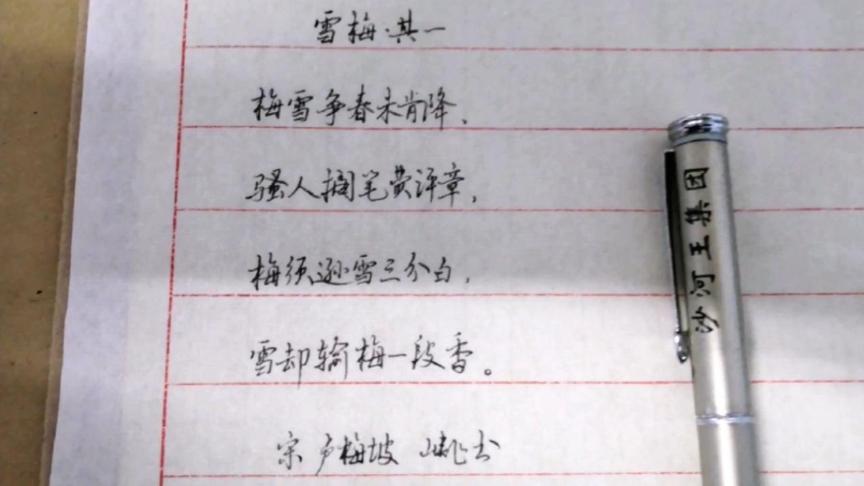 雪梅·其一
梅雪争春未肯降、
骚人搁笔费评章，
梅须逊雪三分白，
雪却输梅一段香。
宋 卢梅坡 书
沙河王集团